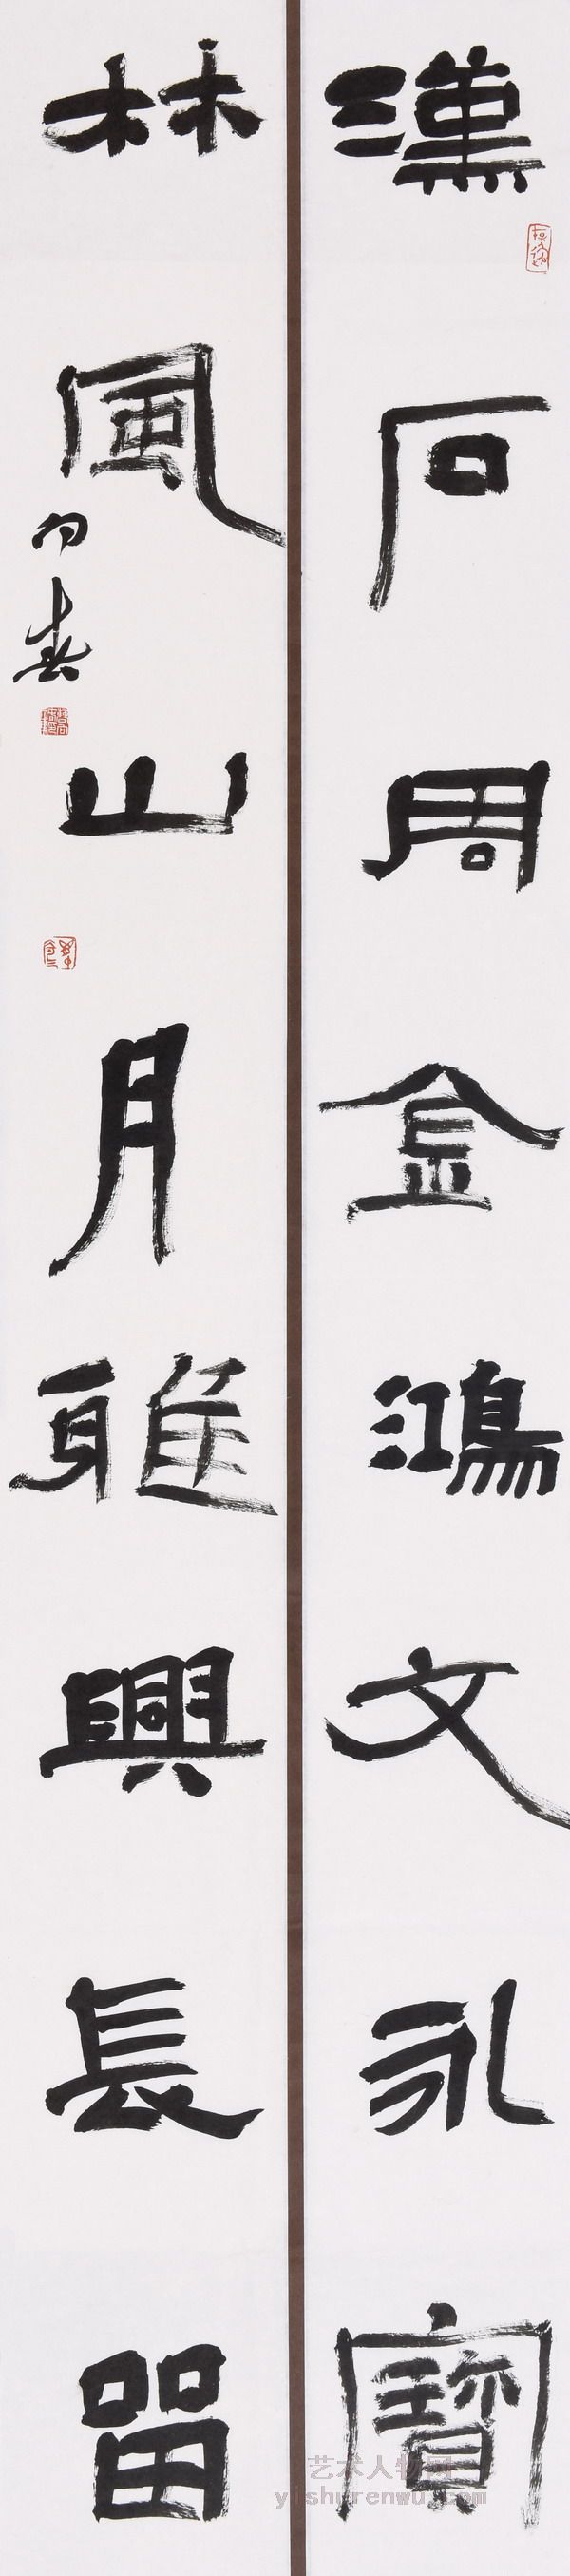 漢石周金鴻文永寶
林風山月雅興長留
向春
艺术人物网
yishurenwu.com